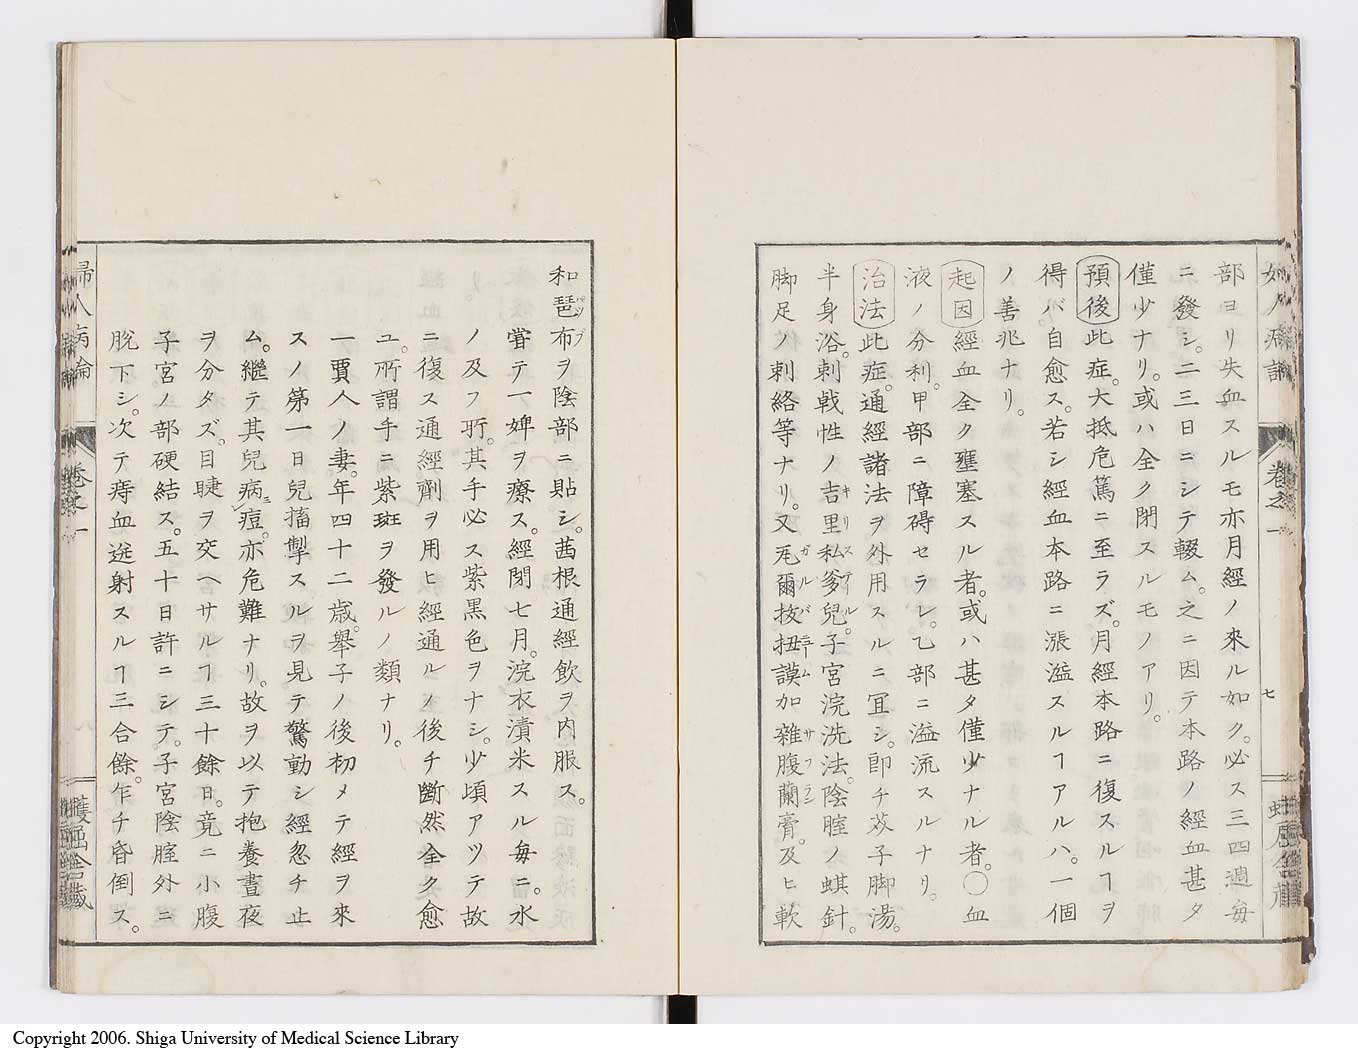 部ヨリ失血スルモ亦月經ノ來ル如ク。必ス三四週毎
ニ發シ。二三日ニシテ輟ム。之ニ因テ本路ノ經血甚タ
僅少ナリ。或ハ全ク閉スルモノアリ。
預後此症。大抵危篤ニ至ラズ。月經本路ニ復スルヿヲ
得バ自愈ス。若シ經血本路ニ漲溢スルヿアルハ。一個
ノ善兆ナリ。
起因經血全ク壅塞スル者。或ハ甚タ僅少ナル者。〇血
液ノ分利。甲部ニ障碍セラレ。乙部ニ溢流スルナリ。
治法此症。通經諸法ヲ外用スルニ冝シ。即チ芥子脚湯。
半身浴。刺戟性ノ吉里私爹兒。子宮浣洗法。陰腟ノ蜞針。
脚足ノ刺絡等ナリ。又兏爾抜扭謨加雜腹蘭膏。及ヒ軟
巻之一
七
和琶布ヲ陰部ニ貼シ。茜根通經飲ヲ内服ス。
甞テ一婢ヲ療ス。經閉七月。浣衣漬米スル毎ニ。水
ノ及フ所。其手必ス紫黒色ヲナシ。少頃アツテ故
ニ復ス通經劑ヲ用ヒ經通ルノ後チ斷然全ク愈
ユ。所謂手ニ紫斑ヲ發ルノ類ナリ。
一賈人ノ妻。年四十二歳。舉子ノ後初メテ經ヲ來
スノ第一日兒搐掣スルヲ見テ驚動シ經忽チ止
ム。繼テ其兒病痘。亦危難ナリ。故ヲ以テ抱養晝夜
ヲ分タズ。目睫ヲ交ヘサルヿ三十餘日。竟ニ小腹
子宮ノ部硬結ス。五十日許ニシテ。子宮陰腟外ニ
脫下シ。次テ痔血迸射スルヿ三合餘。乍チ昏倒ス。
婦人病論
巻之一
八
Copyright 2006. Shiga University of Medical Science Library